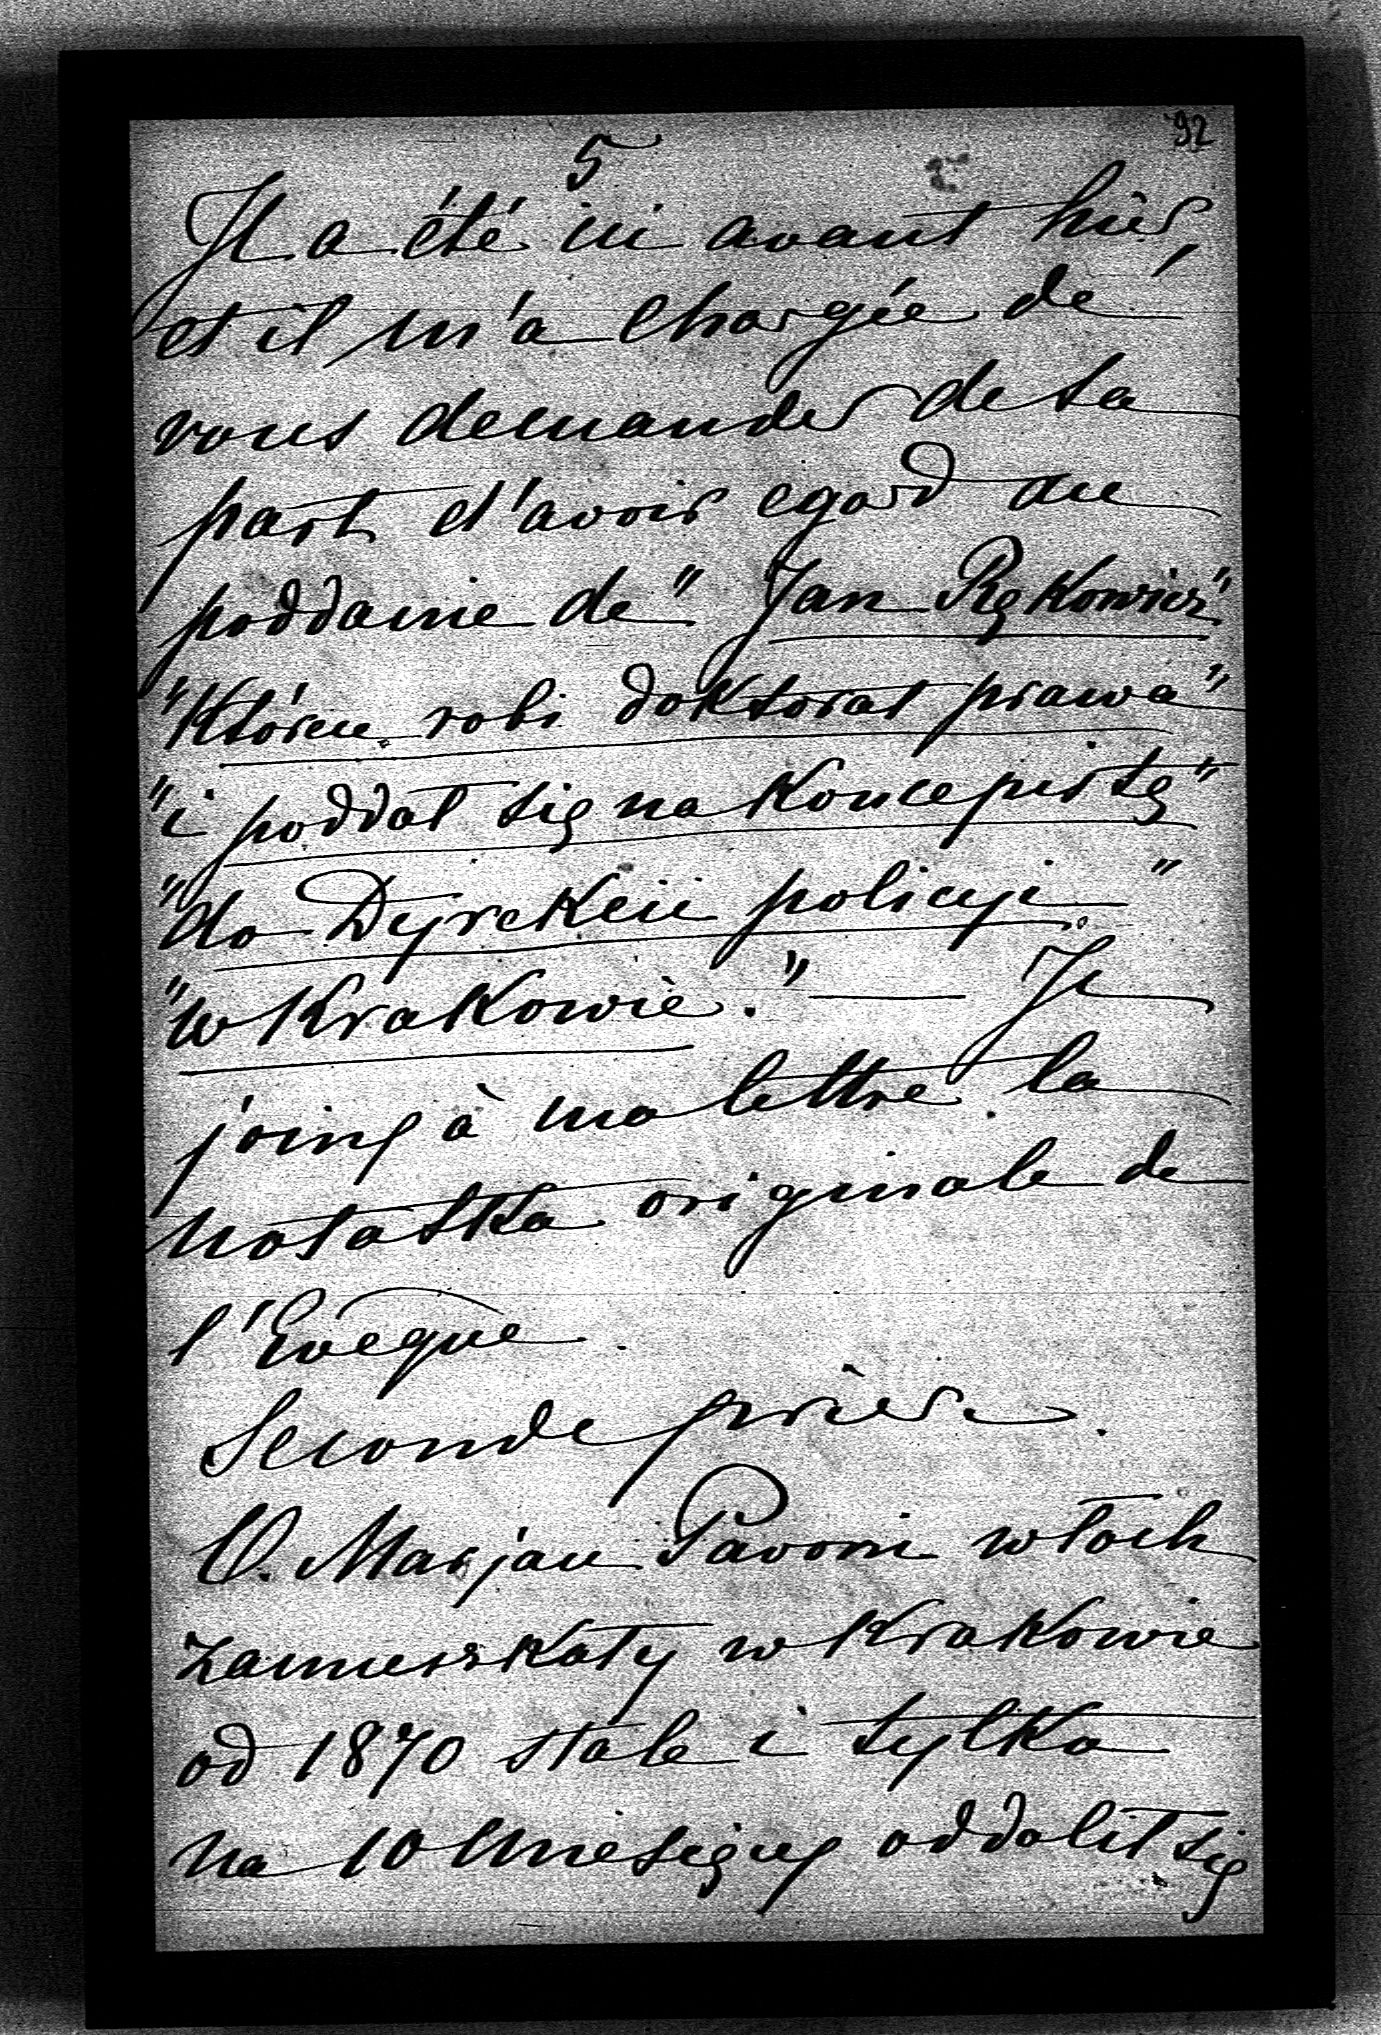 92
5
Il a été ici avant hier,
et il m'a chargée de
vous demander de sa
part d'avoir egard au
poddanie de "Jan Rękowicz"
"Któren robi doktorat prawa"
"i poddał się na Koncepistę"
"do Dyrekcii policyi"
"w Krakowie." — Je
joins à ma lettre la
notatka originale de
l'Evêque.
Seconde prière.
O. Marjan Pavoni włoch
zamieszkały w Krakowie
od 1870 stale i tylko
na 10 miesięcy oddalił się